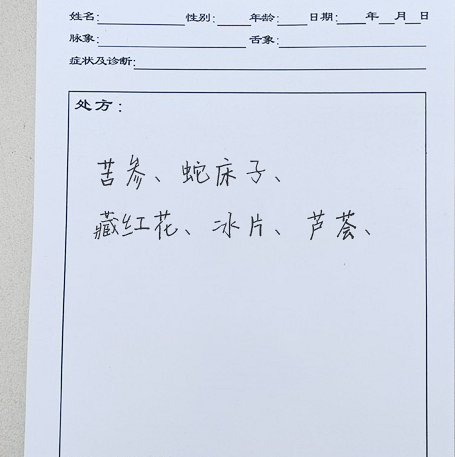 姓名: 性别: 年龄: 日期: 年 月 日
脉象: 舌象:
症状及诊断:
处方:
苦参、蛇床子、
藏红花、冰片、芦荟、